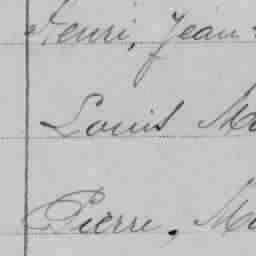 Henri, Jean
Louis
Pierre, M